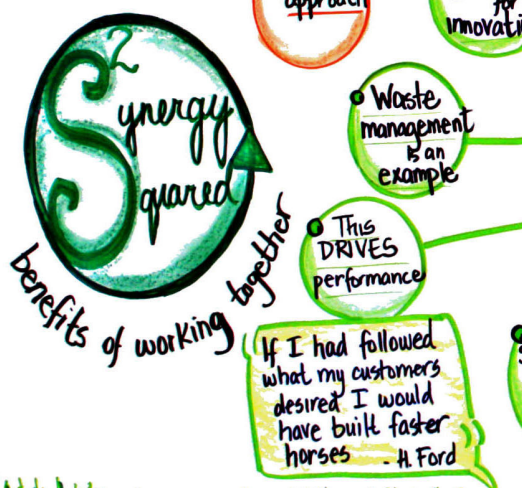 2
Synergy
Squared
benefits of working together
approach
for
Waste
management
is an
example
This
DRIVES
performance
If I had followed
what my customers
desired I would
have built faster
horses - H. Ford